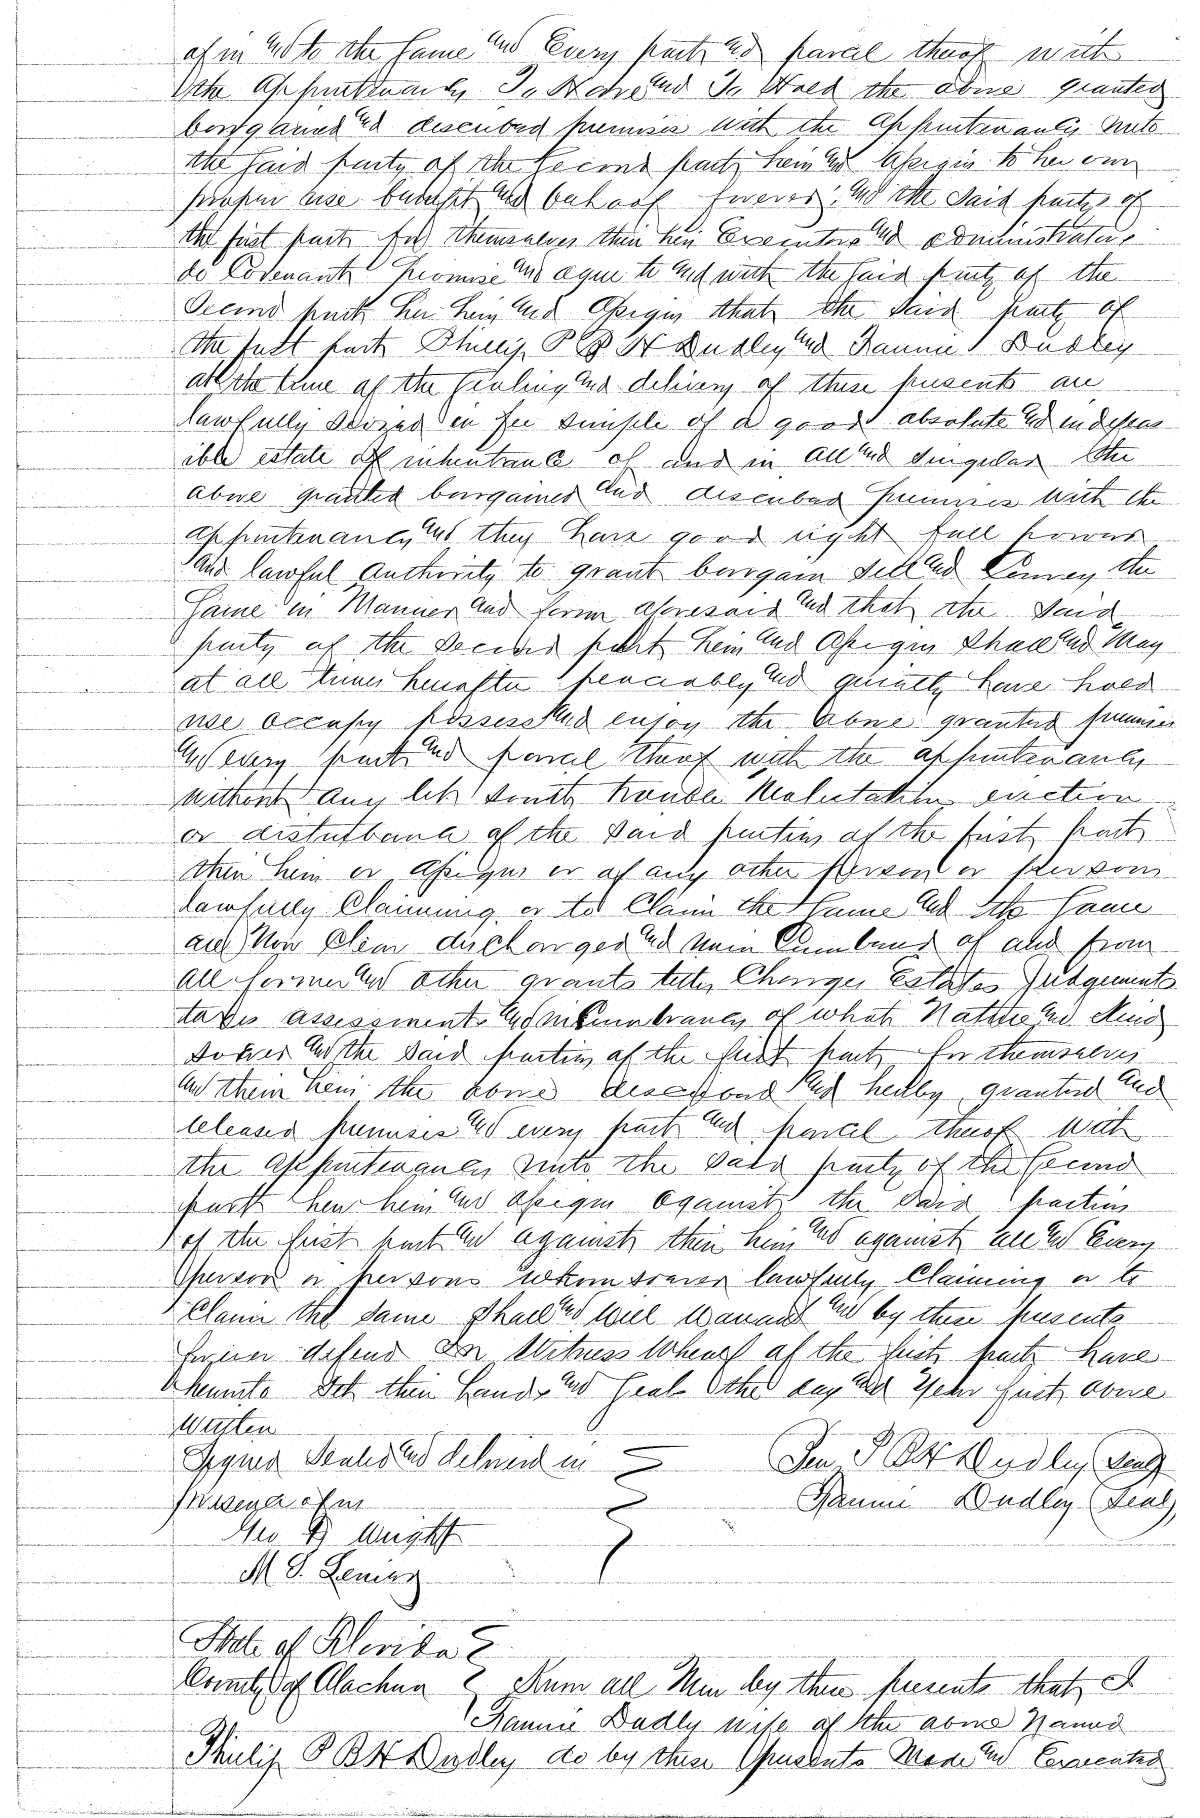 of in and to the same and Every part and parcel thereof with
the appurtenances To Have and To Hold the above granted
bargained and described premises with the appurtenances unto
the said party of the second part heirs and assigns to her own
proper use benefit and behoof forever, and the said partys of
the first part for themselves their heirs Executors and administrators
do Covenant Promise and agree to and with the said party of the
Second part her heirs and assigns that the said party of
the first part Phillip P B H Dudley and Fannie Dudley
at the time of the sealing and delivery of these presents are
lawfully seized in fee simple of a good absolute and indefeas
ible estate of inheritance of and in all and singular the
above granted bargained and described premises with the
appurtenances and they have good right full power
and lawful authority to grant bargain sell and Convey the
same in Manner and form aforesaid and that the said
party of the second part heirs and assigns shall and May
at all times hereafter peaceably and quietly have hold
use occupy possess and enjoy the above granted premises
and every part and parcel thereof with the appurtenances
without any let suit trouble Molestation eviction
or disturbance of the said parties of the first part
their heirs or assigns or of any other person or persons
lawfully Claiming or to Claim the same and the same
are Now Clear discharged and of and from
all former and other grants titles Charges Estates Judgements
taxes assessments and incumbrances of what Nature and Kind
soever and the said parties of the first part for themselves
and their heirs the above described and hereby granted and
released premises and every part and parcel thereof with
the appurtenances unto the said party of the second
part her heirs and assigns against the said parties
of the first part and against their heirs and against all and Every
person or persons whomsoever lawfully Claiming or to
Claim the same shall and will warrant and by these presents
forever defend In Witness Whereof of the first part have
hereunto set their hands and seals the day and year first above
written
Signed Sealed and delivered in P B H Dudley (Seal)
presence of us Fannie Dudley (Seal)
Geo Wright
M S.
State of Florida
County of Alachua Know all Men by these presents that I
Fannie Dudly wife of the above Named
Philip P B H Dudley do by these presents Made and Executed